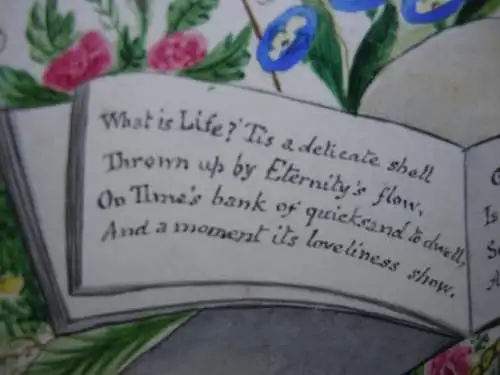 What is Life? 'Tis a delicate shell
Thrown up by Eternity's flow,
On Time's bank of quicksand to dwell,
And a moment its loveliness show.